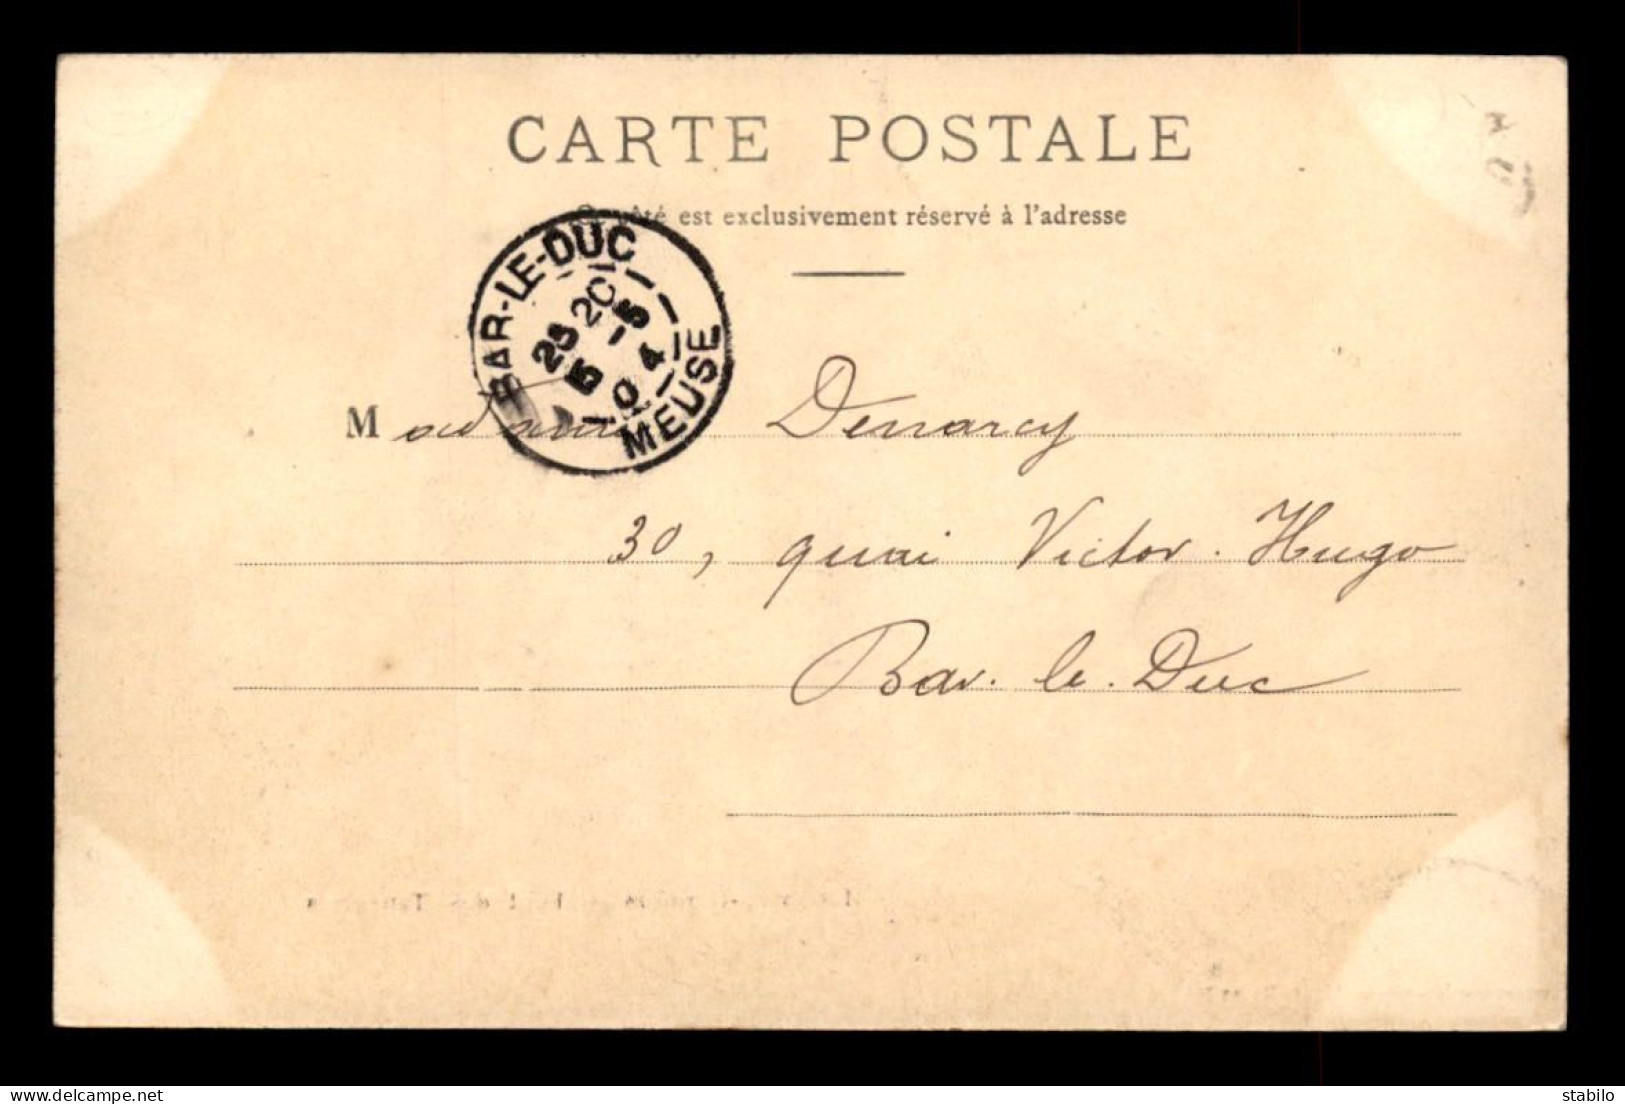 CARTE POSTALE
Ce côté est exclusivement réservé à l'adresse
BAR-LE-DUC
23 20
5 -5
04
MEUSE
Madame Denarcy
30, quai Victor-Hugo
Bar-le-Duc
www.delcampe.net
stabilo